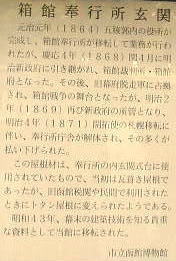 箱館奉行所玄関
元治元年（1864）五稜郭内の役所が
完成し、箱館奉行所が移転して業務が行わ
れたが、慶応4年（1868）閏4月に明
治新政府に引き継がれ、箱館裁判所・箱館
府となった。その後、旧幕府脱走軍に占拠
され、箱館戦争の舞台となったが、明治2
年（1869）再び新政府の所管となり、
明治4年（1871）開拓使の札幌移転に
伴い、奉行所庁舎が解体され、その多くが
払い下げられた。
この屋根材は、奉行所の内玄関式台に使
用されていたもので、当初は瓦葺き屋根で
あったが、旧函館税関や民間で利用された
ときにトタン屋根に変えられたようである。
昭和43年、幕末の建築技術を知る貴重
な資料として当館に移転された。
市立函館博物館